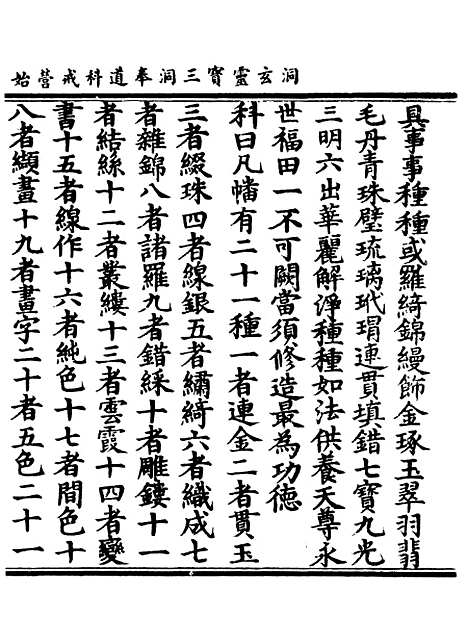 洞玄靈寶三洞奉道科戒營始
具事事種種或羅綺錦縵飾金琢玉翠羽翡
毛丹青珠璧琉璃玳瑁連貫填錯七寶九光
三明六出華麗解淨種種如法供養天尊永
世福田一不可闕當須修造最為功德
科曰凡幡有二十一種一者連金二者貫玉
三者綴珠四者線銀五者繡綺六者織成七
者雜錦八者諸羅九者錯綵十者雕鏤十一
者結絲十二者叢縷十三者雲霞十四者變
書十五者線作十六者純色十七者間色十
八者纈畫十九者畫字二十者五色二十一